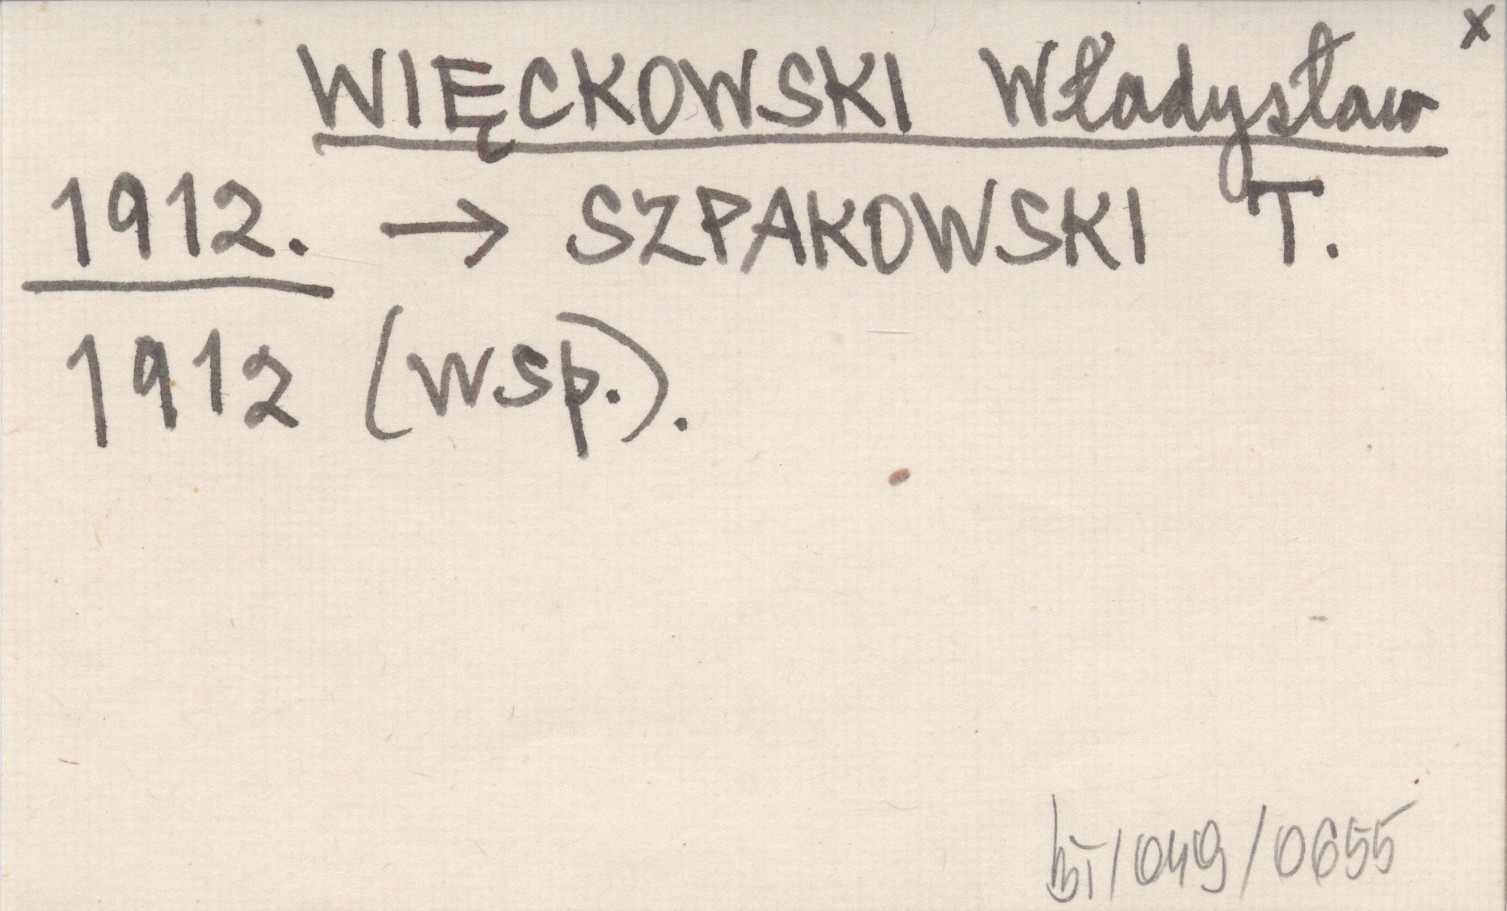 x
WIĘCKOWSKI Władysław
1912. → SZPAKOWSKI T.
1912 (wsp.).
/049/0655